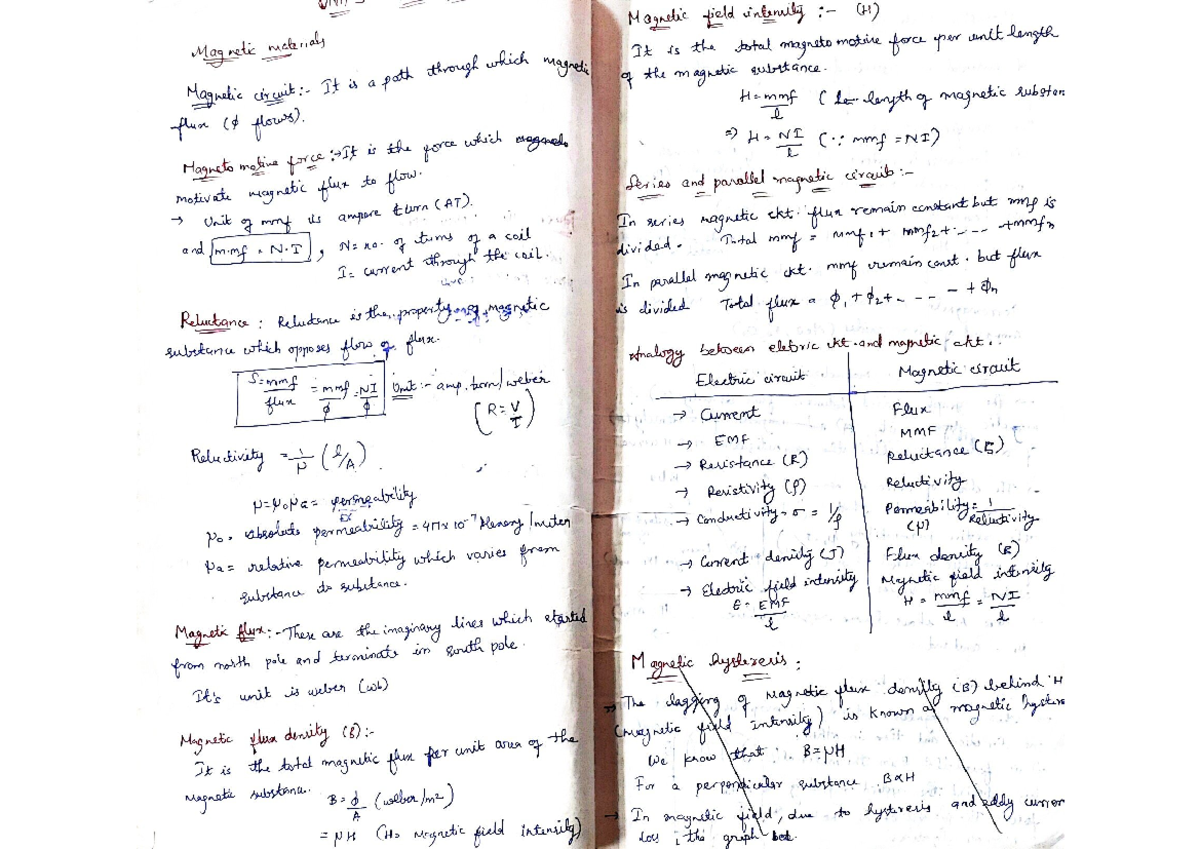 Magnetic materials
Magnetic circuit :- It is a path through which magnetic
flux (ϕ flows).
Magneto motive force :→ It is the force which
motivate magnetic flux to flow.
→ Unit of mmf is ampere turn (AT).
and m.mf = N.I , N = no. of turns of a coil
I = current through the coil.
Reluctance : Reluctance is the property of magnetic
substance which opposes flow of flux.
S = mmf/flux = mmf/ϕ = NI/ϕ Unit :- amp. turn/weber
[R = V/I]
Reluctivity = 1/μ (l/A)
μ = μoμa = permeability
μo = absolute permeability = 4π×10⁻⁷ Henery/meter
μa = relative permeability which varies from
substance to substance.
Magnetic flux :- These are the imaginary lines which started
from north pole and terminate in south pole.
It's unit is weber (wb)
Magnetic flux density (B) :-
It is the total magnetic flux per unit area of the
magnetic substance.
B = ϕ/A (weber/m2)
= μH (H = Magnetic field intensity)
Magnetic field intensity :- (H)
It is the total magneto motive force per unit length
of the magnetic substance.
H = mmf/l (l = length of magnetic substan
⇒ H = NI/l (∵ mmf = NI)
Series and parallel magnetic circuit :-
In series magnetic ckt. flux remain constant but mmf is
divided. Total mmf = mmf1 + mmf2 + - - - + mmfn
In parallel magnetic ckt. mmf remain const. but flux
is divided Total flux = ϕ1 + ϕ2 + - - - - + ϕn
Analogy between eletric ckt. and magnetic ckt. :
Electric circuit Magnetic circuit
→ Current Flux
→ EMF MMF
→ Resistance (R) Reluctance (S)
→ Resistivity (ρ) Reluctivity
→ Conductivity = σ = 1/ρ Permeability = 1/Reluctivity
(μ)
→ Current density (J) Flux density (B)
→ Electric field intensity Magnetic field intensity
E = EMF/l H = mmf/l = NI/l
Magnetic hysteresis :
→ The lagging of magnetic flux density (B) behind H
(magnetic field intensity) is known as magnetic hystere
We know that : B = μH
For a perpendicular substance B ∝ H
→ In magnetic field, due to hysteresis and eddy curren
loss, the graph bet.